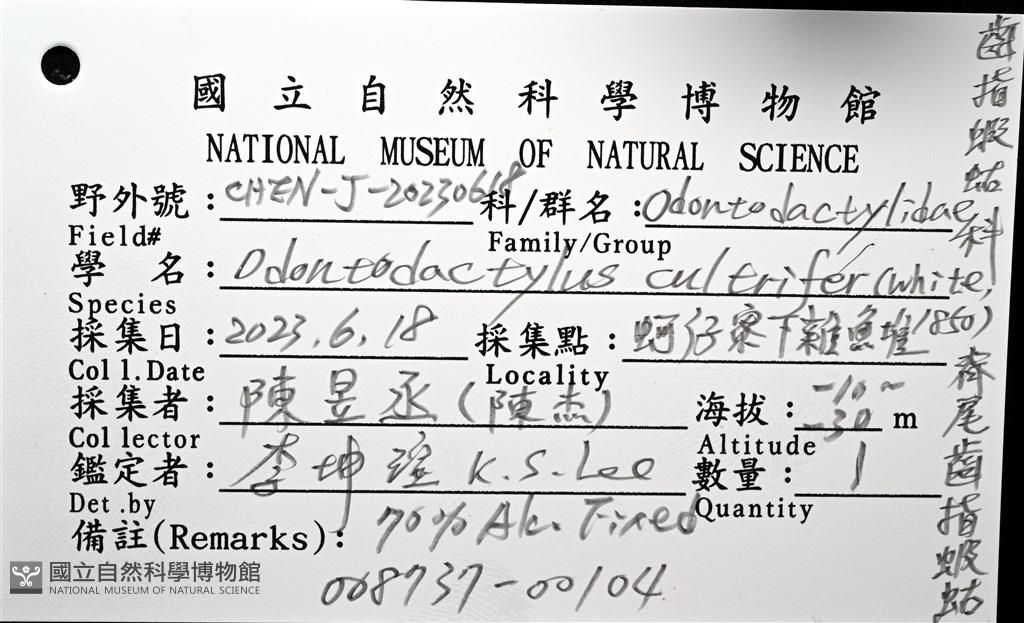 國立自然科學博物館
NATIONAL MUSEUM OF NATURAL SCIENCE
野外號：CHEN-J-20230618 科/群名：Odontodactylidae
Field# Family/Group
學名：Odontodactylus cultrifer (White, 1850)
Species
採集日：2023.6.18 採集點：蚵仔寮下雜魚堆
Coll.Date Locality
採集者：陳昱丞(陳杰) 海拔：-10~-30 m
Collector Altitude
鑑定者：李坤瑄 K.S.Lee 數量：1
Det.by Quantity
備註(Remarks)：70% Alc. Fixed
008737-00104
齒指蝦蛄科
脊尾齒指蝦蛄
國立自然科學博物館
NATIONAL MUSEUM OF NATURAL SCIENCE